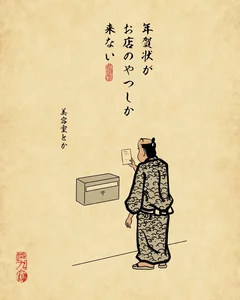 年賀状が
お店のやつしか
来ない
美容室とか